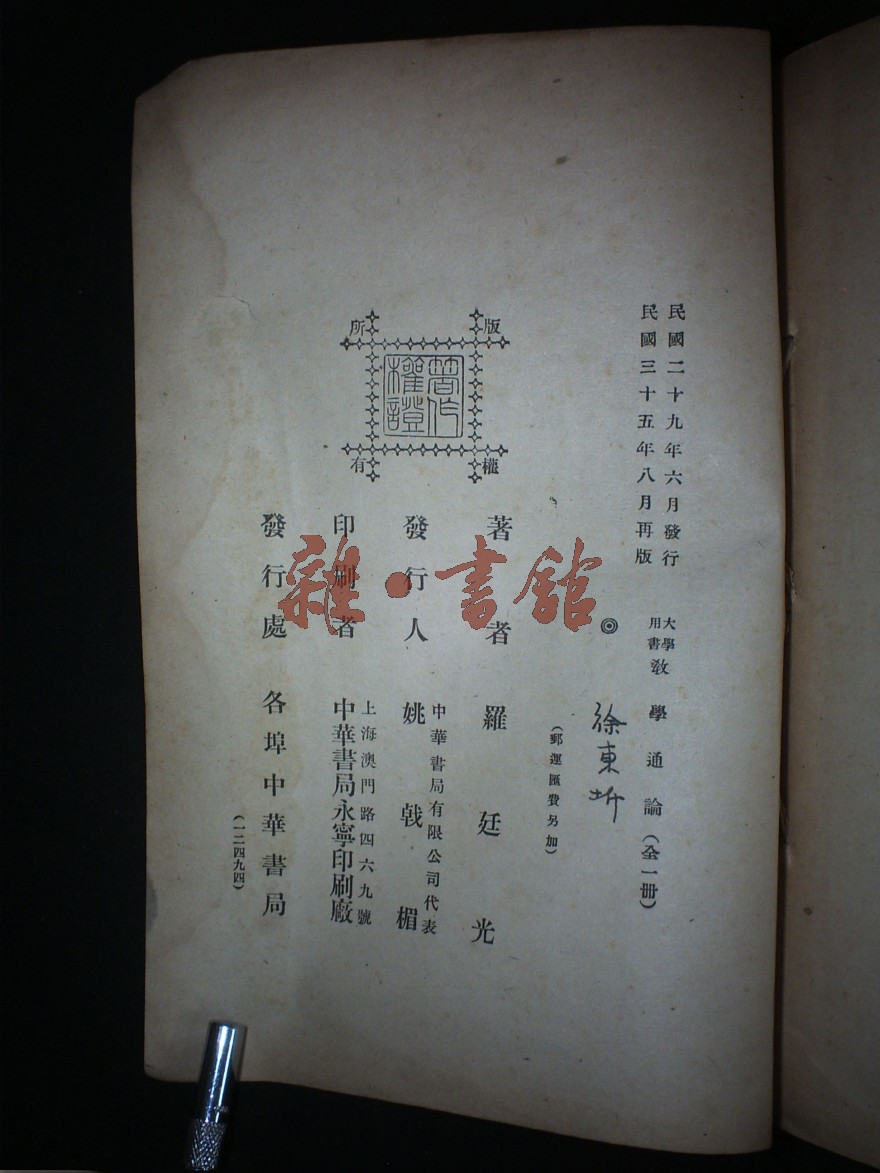 民國二十九年六月發行
民國三十五年八月再版
大學用書 敎學通論（全一册）
◎
徐東
（郵運匯費另加）
版權所有
著作權證
著者 羅廷光
發行人 中華書局有限公司代表 姚戟楣
印刷者 上海澳門路四六九號 中華書局永寧印刷廠
發行處 各埠中華書局
（一二四九四）
雜·書館